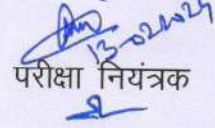 13-02-2024
परीक्षा नियंत्रक